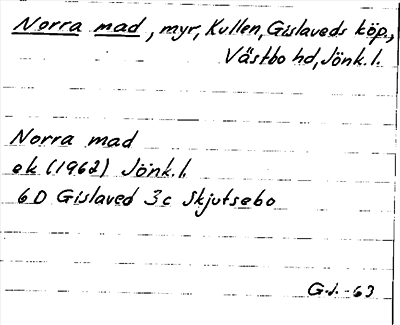 Norra mad, myr, Kullen, Gislaveds köp.,
Västbo hd, Jönk.l.
Norra mad
ek (1962) Jönk.l.
6D Gislaved 3c Skjutsebo
G.J. -63